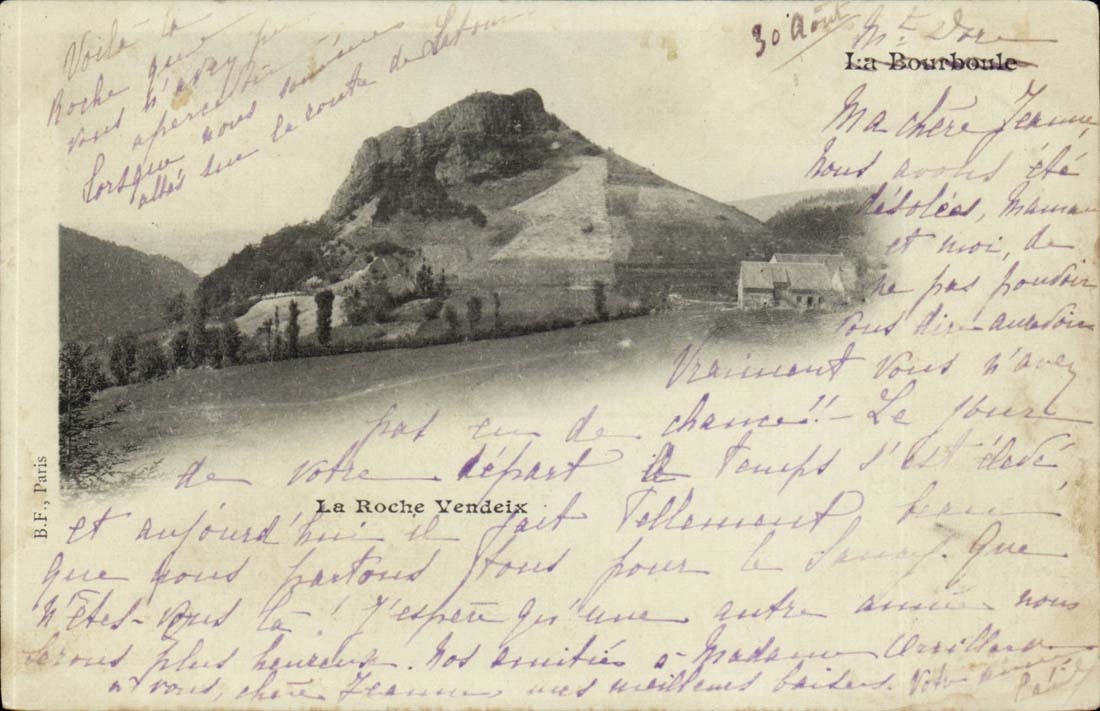 30 Août
Mt Dore
La Bourboule
Voilà la
Roche que
vous n'avez pu
apercevoir
Lorsque nous sommes
allés sur la route de
Ma chère Jeanne,
Nous avons été
désolées, Maman
et moi, de
ne pas pouvoir
vous dire au revoir
Vraiment vous n'avez
pas eu de chance!! - Le jour
de votre départ le temps s'est
et aujourd'hui il fait tellement beau
que nous partons tous pour le Sancy. Que
n'êtes-vous là! J'espère qu'une autre année nous
serons plus heureux. Nos amitiés à Madame
et vous, chère Jeanne, mes meilleurs baisers. Votre amie
La Roche Vendeix
B.F., Paris